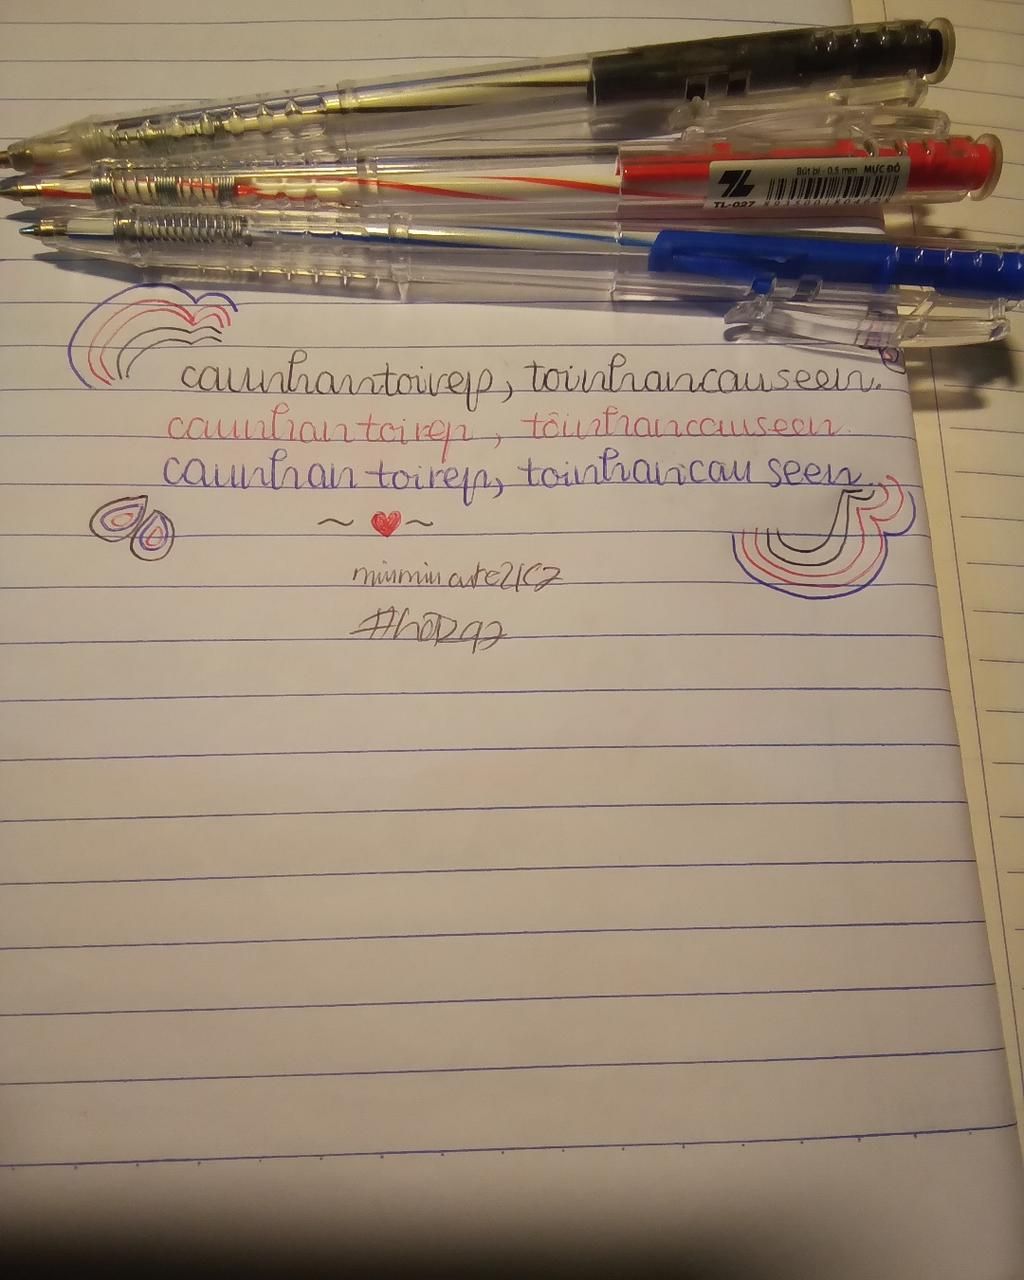 Bút bi - 0.5 mm MỰC ĐỎ
TL-027
caunhantoirep, toinhancauseen.
caunhantoirep, toinhancauseen.
caunhan toirep, toinhancau seen.
~ ~